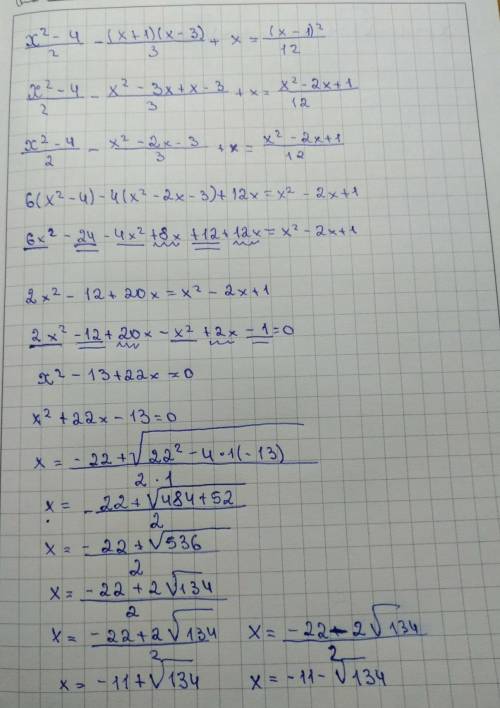 x²-4/2 - (x+1)(x-3)/3 + x = (x-1)²/12
x²-4/2 - x²-3x+x-3/3 + x = x²-2x+1/12
x²-4/2 - x²-2x-3/3 + x = x²-2x+1/12
6(x²-4)-4(x²-2x-3)+12x=x²-2x+1
6x²-24-4x²+8x+12+12x=x²-2x+1
2x²-12+20x=x²-2x+1
2x²-12+20x-x²+2x-1=0
x²-13+22x=0
x²+22x-13=0
x= -22+√22²-4·1(-13)/2·1
x= -22+√484+52/2
x= -22+√536/2
x= -22+2√134/2
x= -22+2√134/2 x= -22-2√134/2
x= -11+√134 x= -11-√134